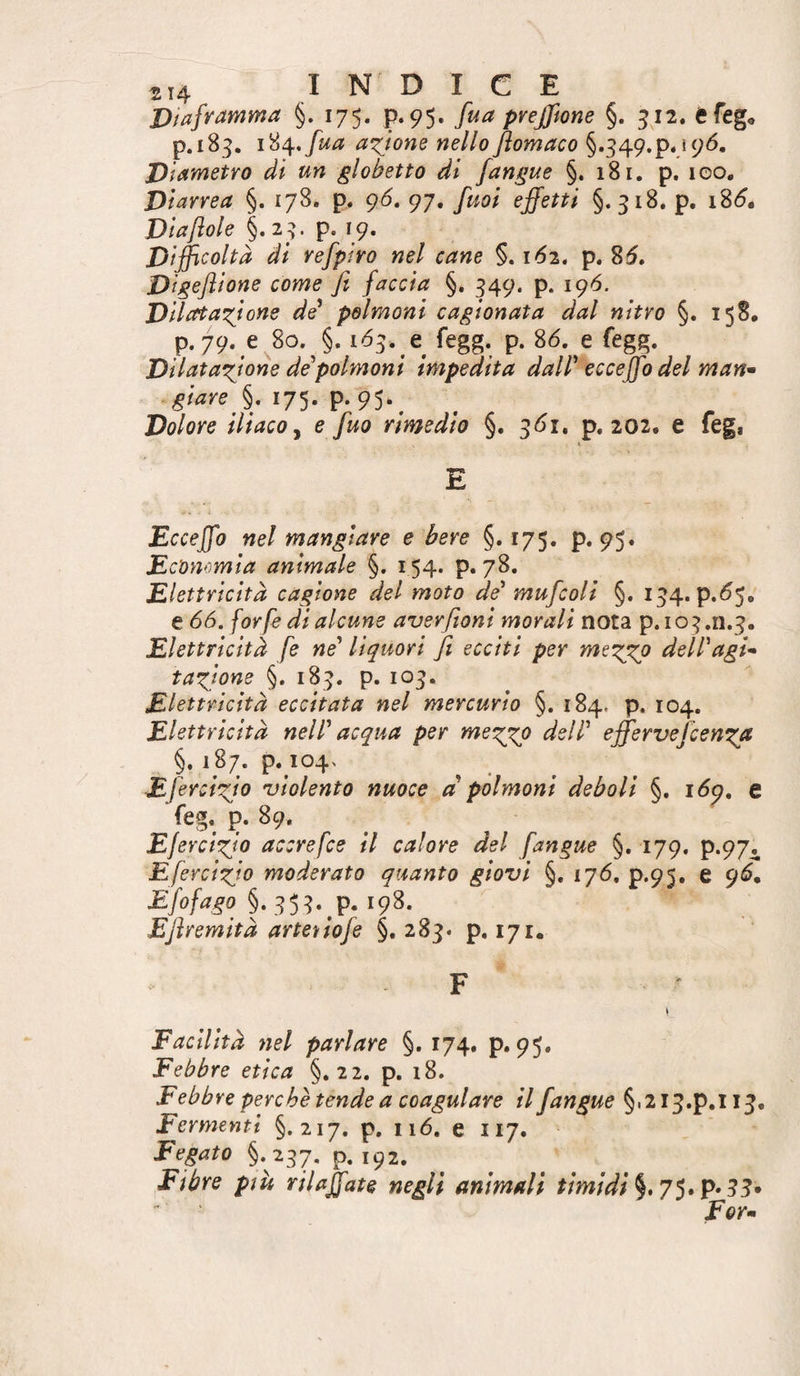 214 INDICE
Diaframma §. 175. p. 95. ſua preſſione §. 312. e ſeg.
p. 183. 184. ſua azione nello ſtomaco §. 349. p. 196.
Diametro di un globetto di ſangue §. 181. p. 100.
Diarrea §. 178. p. 96. 97. ſuoi effetti §. 318. p. 186.
Diaſtole §. 23. p. 19.
Difficoltà di reſpiro nel cane §. 162. p. 86.
Digeſtione come ſi faccia §. 349. p. 196.
Dilatazione de' polmoni cagionata dal nitro §. 158.
p. 79. e 80. §. 163. e ſegg. p. 86. e ſegg.
Dilatazione de' polmoni impedita dall' ecceſſo del man-
giare §. 175. p. 95.
Dolore iliaco, e ſuo rimedio §. 361. p. 202. e ſeg.
E
Ecceſſo nel mangiare e bere §. 175. p. 95.
Economia animale §. 154. p. 78.
Elettricità cagione del moto de' muſcoli §. 134. p. 65.
e 66. forſe di alcune averſioni morali nota p. 103. n. 3.
Elettricità ſe ne' liquori ſi ecciti per mezzo dell' agi-
tazione §. 183. p. 103.
Elettricità eccitata nel mercurio §. 184. p. 104.
Elettricità nell' acqua per mezzo dell' efferveſcenza
§. 187. p. 104.
Eſercizio violento nuoce a' polmoni deboli §. 169. e
ſeg. p. 89.
Eſercizio accreſce il calore del ſangue §. 179. p. 97.
Eſercizio moderato quanto giovi §. 176. p. 95. e 96.
Eſofago §. 353. p. 198.
Eſtremità arterioſe §. 283. p. 171.
F
Facilità nel parlare §. 174. p. 95.
Febbre etica §. 22. p. 18.
Febbre perchè tende a coagulare il ſangue §. 213. p. 113.
Fermenti §. 217. p. 116. e 117.
Fegato §. 237. p. 192.
Fibre più rilaſſate negli animali timidi §. 75. p. 33.
For-